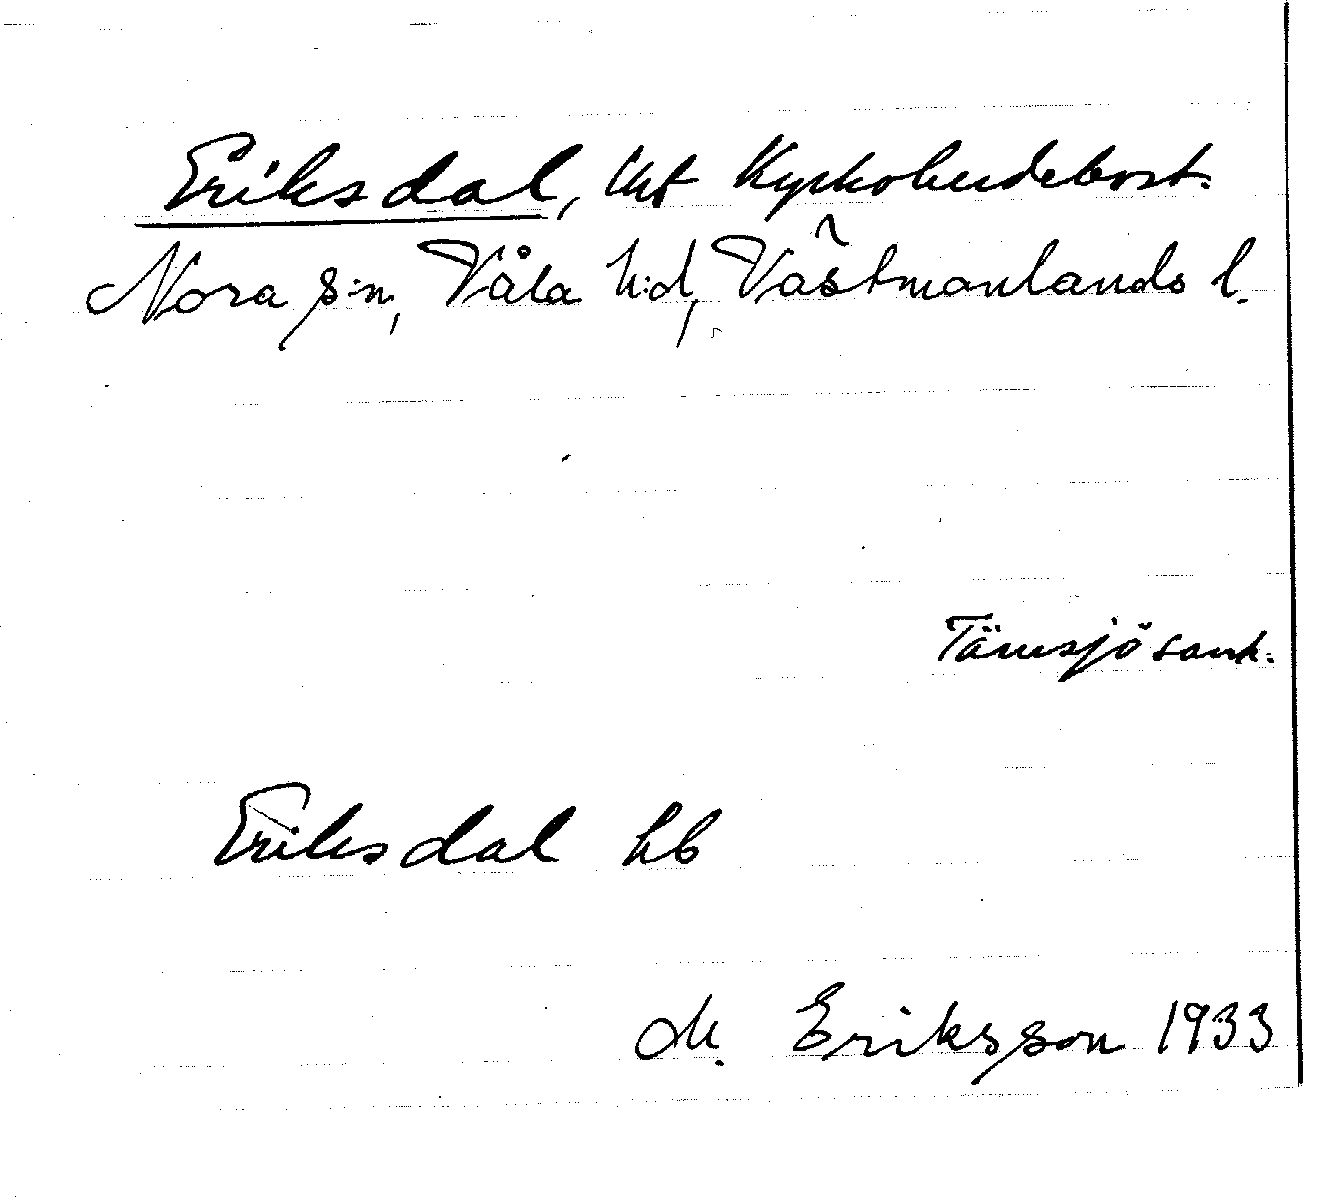 Eriksdal, lht Kyrkoherdebost.
Nora s:n, Våla h:d, Västmanlands l.
Tärnsjö samh.
Eriksdal hb
M. Eriksson 1933